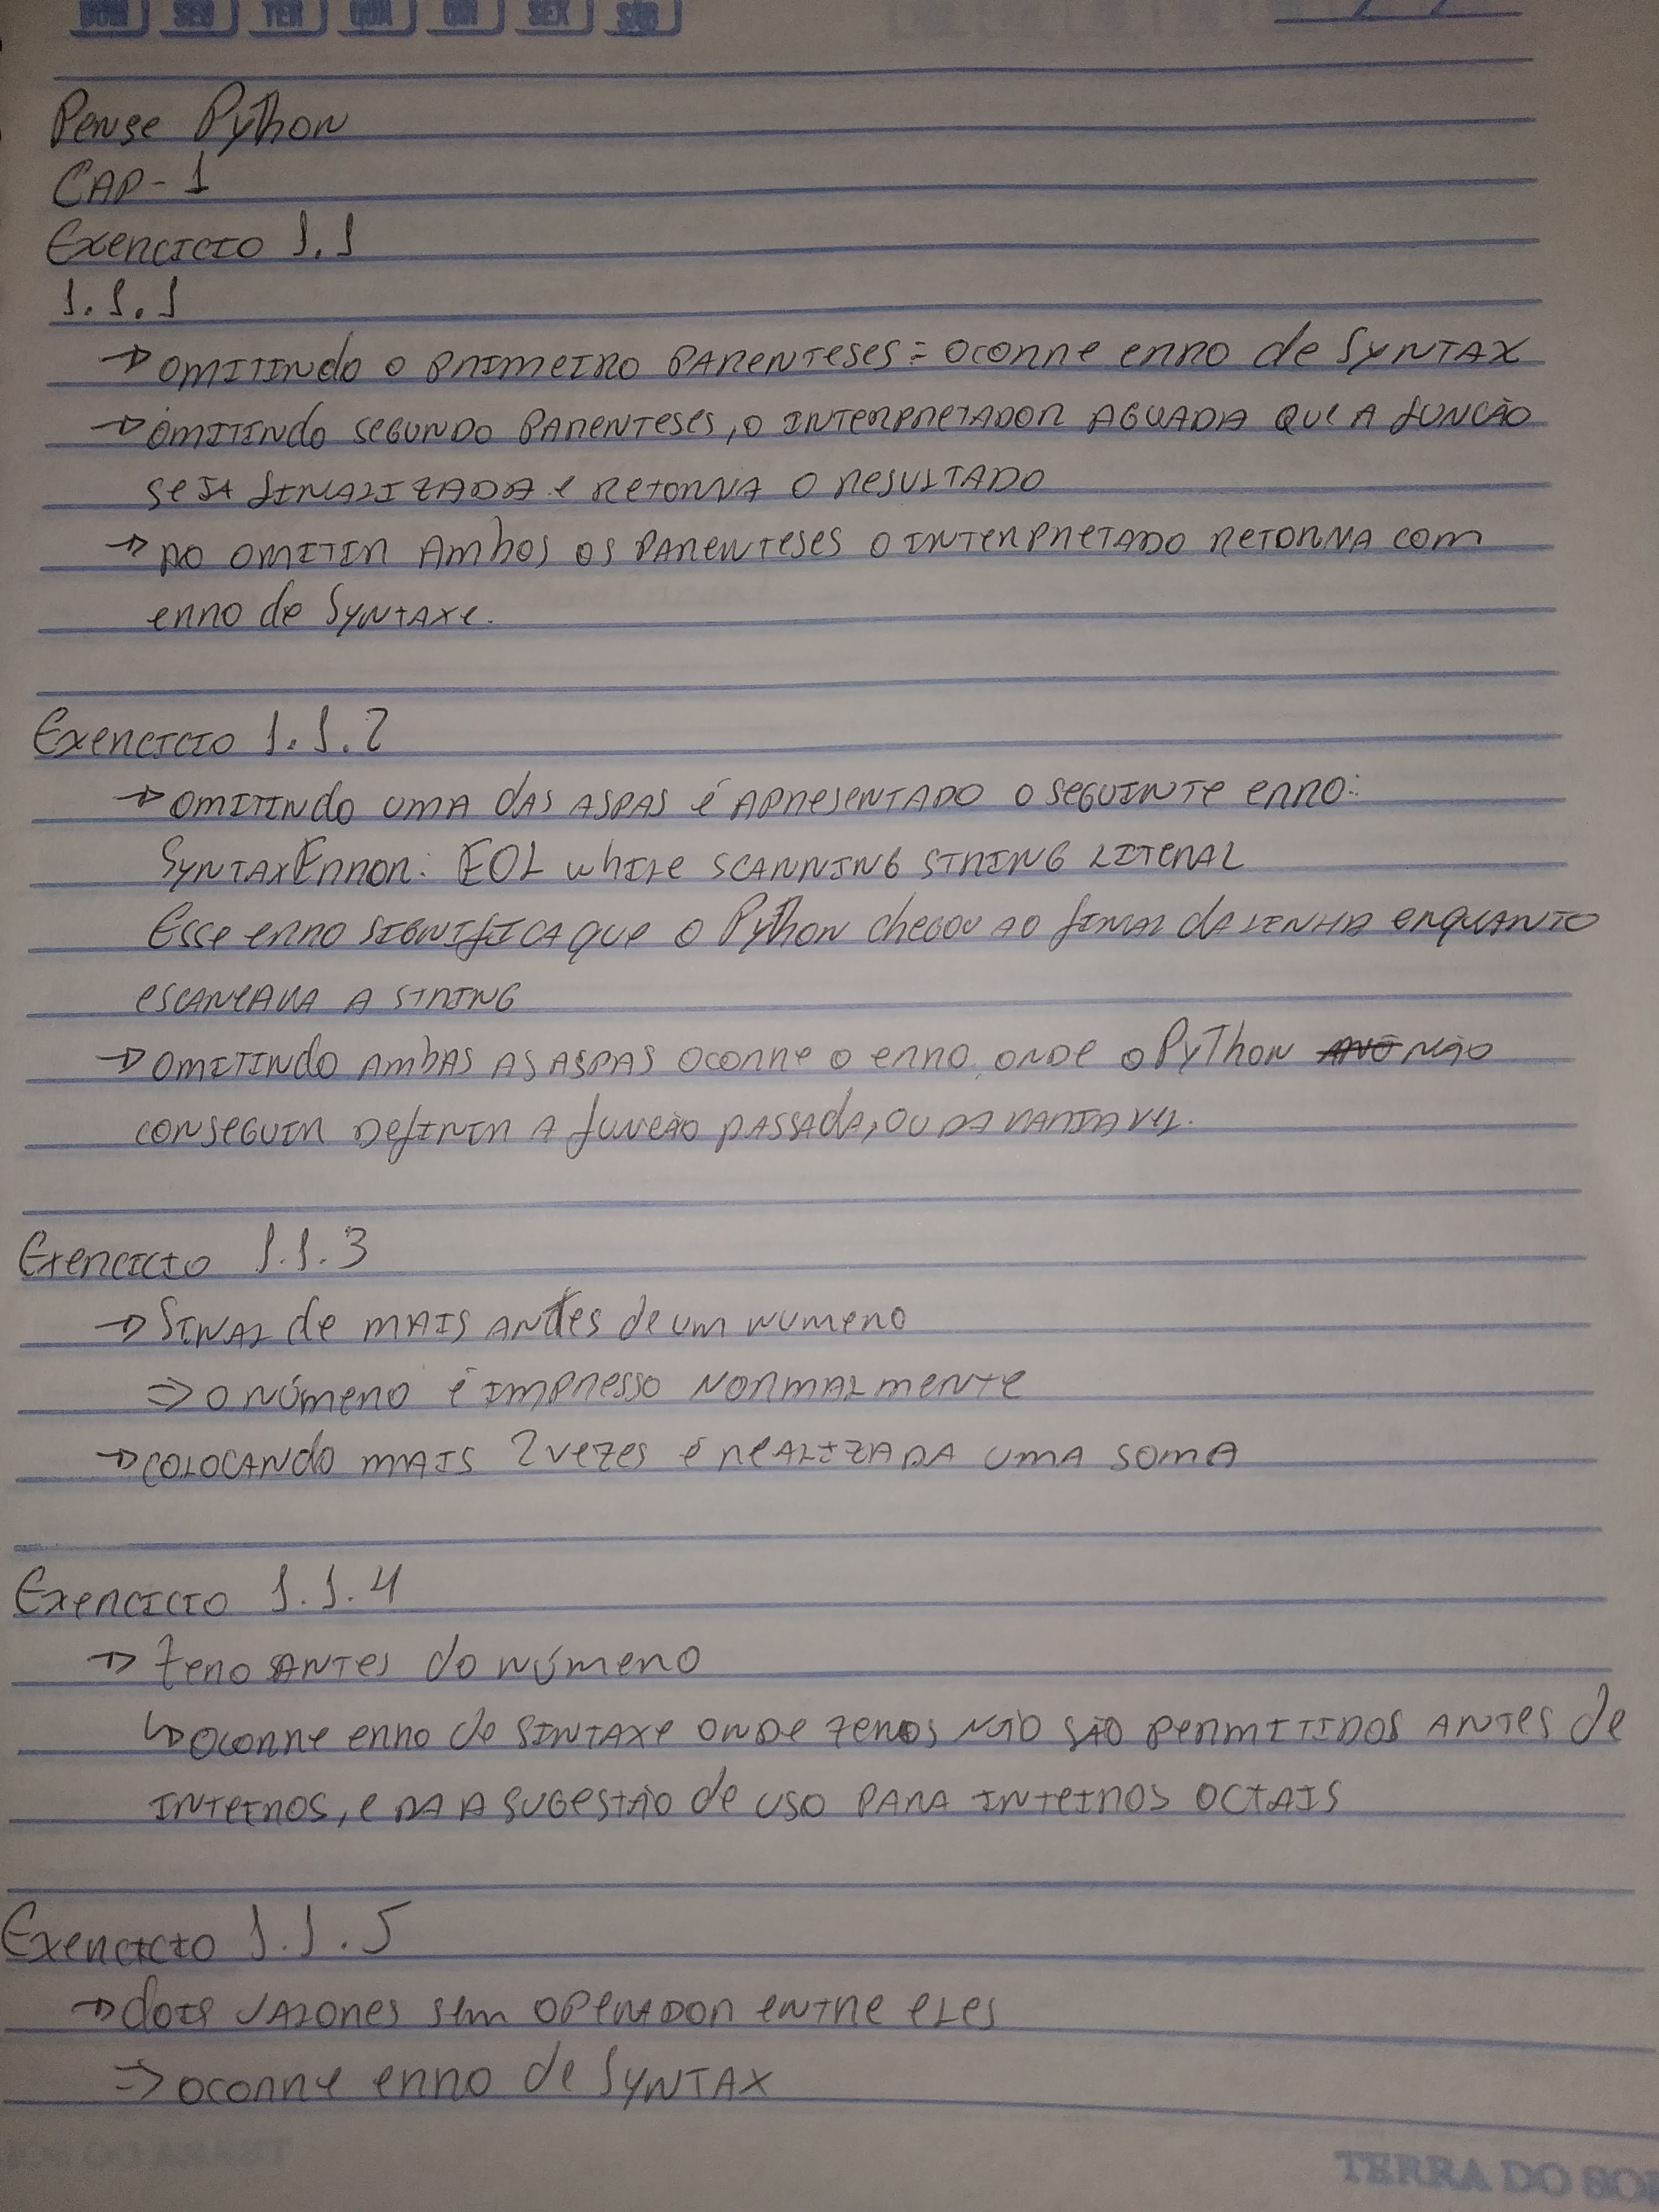 DOM SEG TER QUA QUI SEX SÁB
Pense Python
CAP-1
Exercicio 1.1
1.1.1
→ omitindo o primeiro parenteses = ocorre erro de Syntax
→ omitindo segundo parenteses, o interpretador aguada que a função
seja finalizada e retorna o resultado
→ ao omitir ambos os parenteses o interpretado retorna com
erro de Syntaxe.
Exercicio 1.1.2
→ omitindo uma das aspas é apresentado o seguinte erro:
SyntaxError: EOL while scanning string literal
Esse erro significa que o Python chegou ao final da linha enquanto
escaneava a string
→ omitindo ambas as aspas ocorre o erro, onde o Python não
conseguir definir a função passada, ou da variavel.
Exercicio 1.1.3
→ Sinal de mais antes de um numero
⇒ o número é impresso normalmente
→ colocando mais 2 vezes é realizada uma soma
Exercicio 1.1.4
→ zero antes do número
↳ ocorre erro de sintaxe onde zeros não são permitidos antes de
inteiros, e da a sugestão de uso para inteiros octais
Exercicio 1.1.5
→ dois valores sem operador entre eles
⇒ ocorre erro de Syntax
TERRA DO